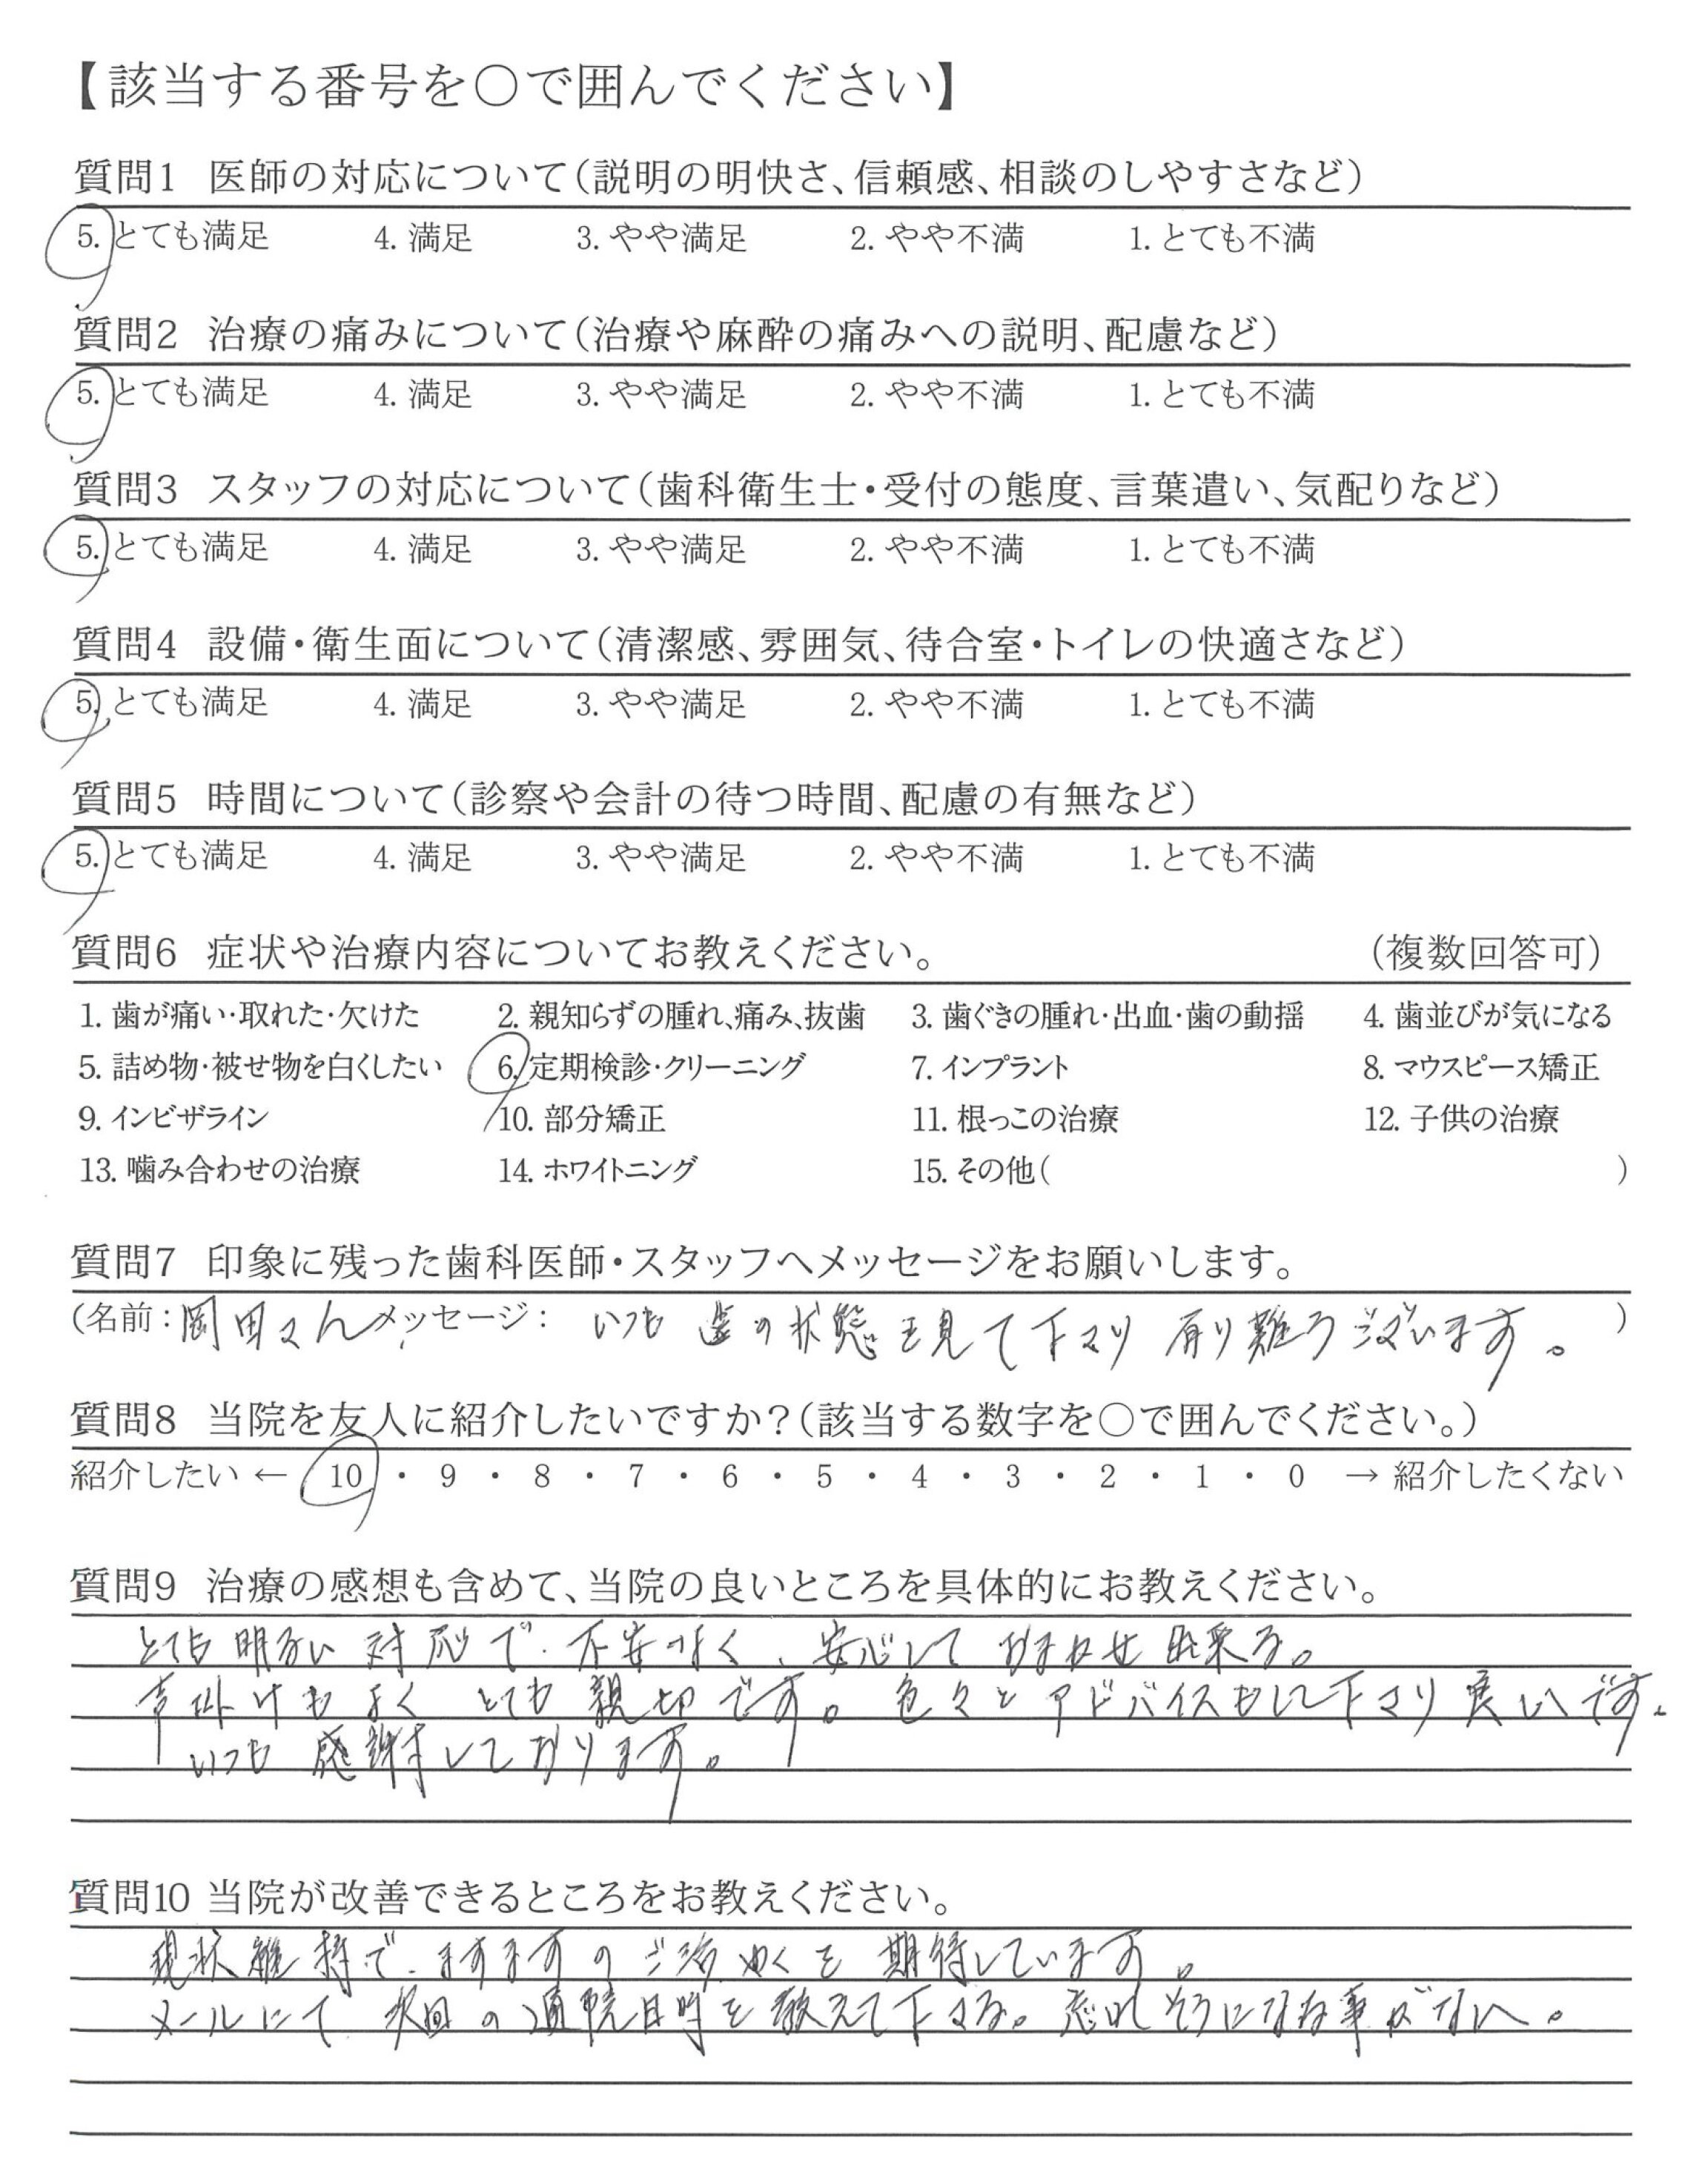 【該当する番号を○で囲んでください】
質問1 医師の対応について(説明の明快さ、信頼感、相談のしやすさなど)
5. とても満足 4. 満足 3. やや満足 2. やや不満 1. とても不満
質問2 治療の痛みについて(治療や麻酔の痛みへの説明、配慮など)
5. とても満足 4. 満足 3. やや満足 2. やや不満 1. とても不満
質問3 スタッフの対応について(歯科衛生士・受付の態度、言葉遣い、気配りなど)
5. とても満足 4. 満足 3. やや満足 2. やや不満 1. とても不満
質問4 設備・衛生面について(清潔感、雰囲気、待合室・トイレの快適さなど)
5. とても満足 4. 満足 3. やや満足 2. やや不満 1. とても不満
質問5 時間について(診察や会計の待つ時間、配慮の有無など)
5. とても満足 4. 満足 3. やや満足 2. やや不満 1. とても不満
質問6 症状や治療内容についてお教えください。 (複数回答可)
1. 歯が痛い・取れた・欠けた 2. 親知らずの腫れ、痛み、抜歯 3. 歯ぐきの腫れ・出血・歯の動揺 4. 歯並びが気になる
5. 詰め物・被せ物を白くしたい 6. 定期検診・クリーニング 7. インプラント 8. マウスピース矯正
9. インビザライン 10. 部分矯正 11. 根っこの治療 12. 子供の治療
13. 噛み合わせの治療 14. ホワイトニング 15. その他( )
質問7 印象に残った歯科医師・スタッフへメッセージをお願いします。
(名前:岡田さん メッセージ: いつも 歯の状態を見て下さり 有り難うございます。 )
質問8 当院を友人に紹介したいですか?(該当する数字を○で囲んでください。)
紹介したい ← 10 ・ 9 ・ 8 ・ 7 ・ 6 ・ 5 ・ 4 ・ 3 ・ 2 ・ 1 ・ 0 → 紹介したくない
質問9 治療の感想も含めて、当院の良いところを具体的にお教えください。
とても明るい対応で、不安なく、安心しておまかせ出来る。
声掛けもよく とても親切です。色々とアドバイスもして下さり良いです。
いつも感謝しております。
質問10 当院が改善できるところをお教えください。
現状維持で、ますますのご活やくを期待しています。
メールにて、次回の通院日時を教えて下さる。忘れそうになる事がない。